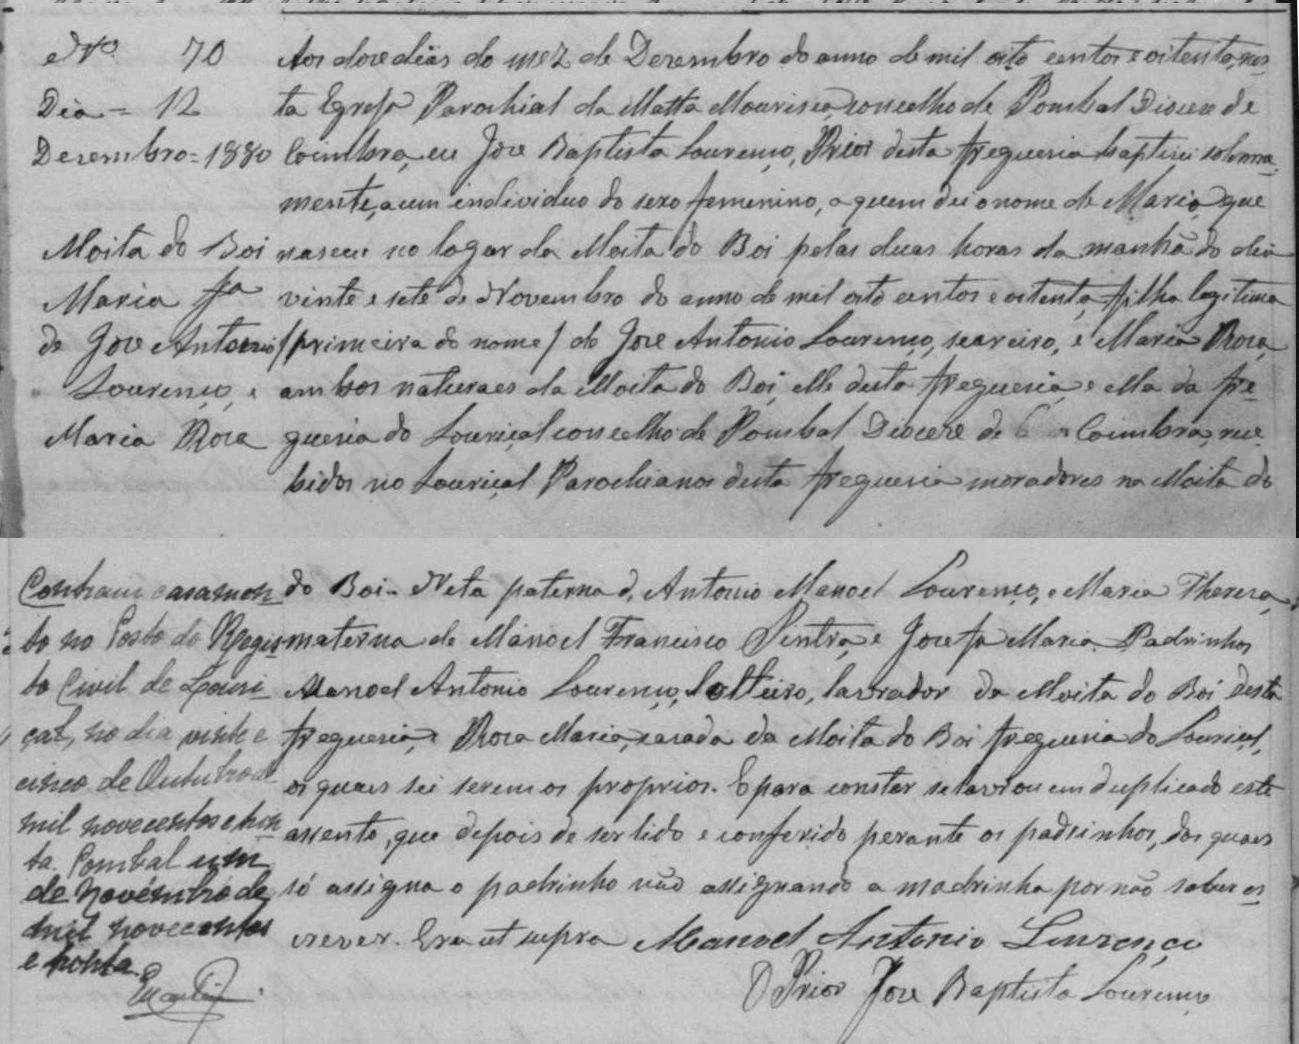 Nº 70
Dia = 12
Dezembro = 1880
Moita do Boi
Maria fa
de Joze Antonio
Lourenço, e
Maria Roza
Aos doze dias do mez de Dezembro do anno de mil oito centos e oitenta, nes-
ta Egreja Parochial da Matta Mourisca, concelho de Pombal Diocese de
Coimbra, eu Joze Baptista Lourenço, Prior desta freguezia baptizei solemne-
mente, a um individuo do sexo femenino, a quem dei o nome de Maria, que
nasceu no logar da Moita do Boi pelas duas horas da manhã do dia
vinte e sete de Novembro do anno de mil oito centos e oitenta, filha legitima
/primeira do nome/ de Joze Antonio Lourenço, seareiro, e Maria Roza,
ambos naturaes da Moita do Boi, elle desta freguezia, e ella da fre-
guezia do Louriçal concelho de Pombal Diocese de Coimbra, rece-
bidos no Louriçal Parochianos desta freguezia moradores na Moita do
do Boi - Neta paterna d, Antonio Manoel Lourenço, e Maria Thereza,
materna de Manoel Francisco Sintra, e Jozefa Maria. Padrinhos
Manoel Antonio Lourenço, solteiro, lavrador da Moita do Boi desta
freguezia, e Roza Maria, cazada da Moita do Boi freguezia do Louriçal,
os quaes sei serem os proprios. E para constar se lavrou em duplicado este
assento, que depois de ser lido e conferido perante os padrinhos, dos quaes
só assigna o padrinho não assignando a madrinha por não saber es-
crever. Era ut supra Manoel Antonio Lourenço
O Prior Joze Baptista Lourenço
Contraiu casamen-
to no Posto do Regis-
to Civil de Louri-
çal, no dia vinte e
cinco de Outubro de
mil novecentos e trin-
ta. Pombal um
de Novembro de
mil novecentos
e trinta.